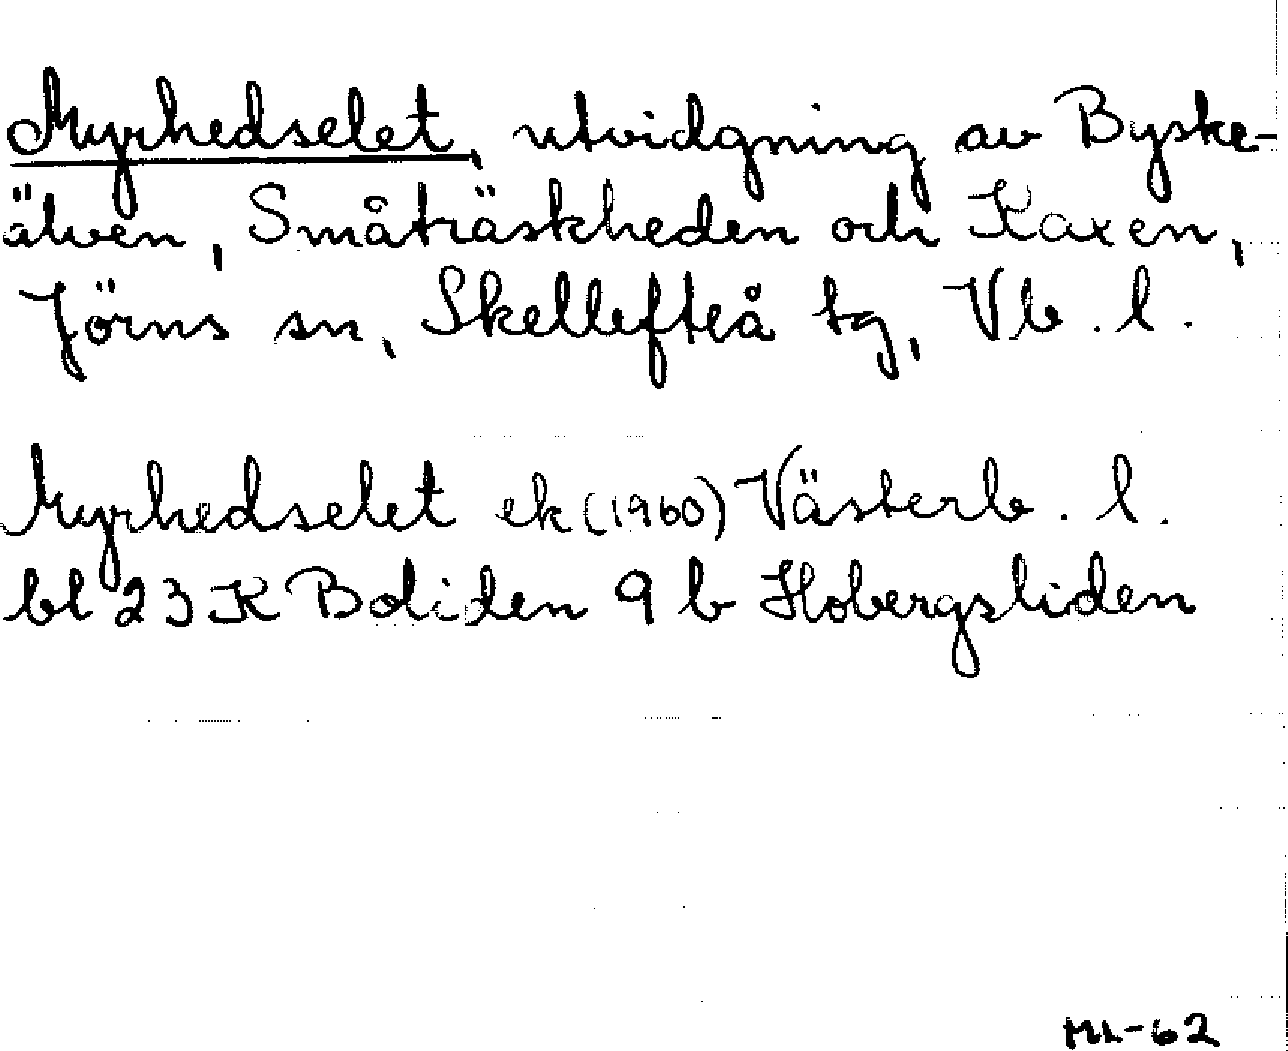 Myrhedselet, utvidgning av Byske-
älven, Småträskheden och Kaxen,
Jörns sn, Skellefteå tg, Vb. l.
Myrhedselet ek (1960) Västerb. l.
bl 23 K Boliden 9 b Hobergsliden
ML-62